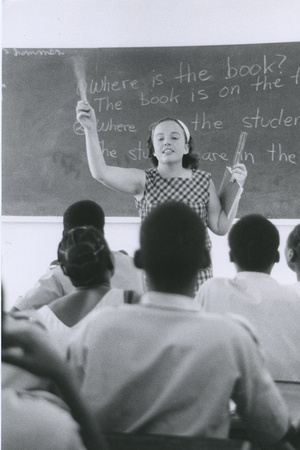 Where is the book?
The book is on the
② Where the studen
The stu are in the